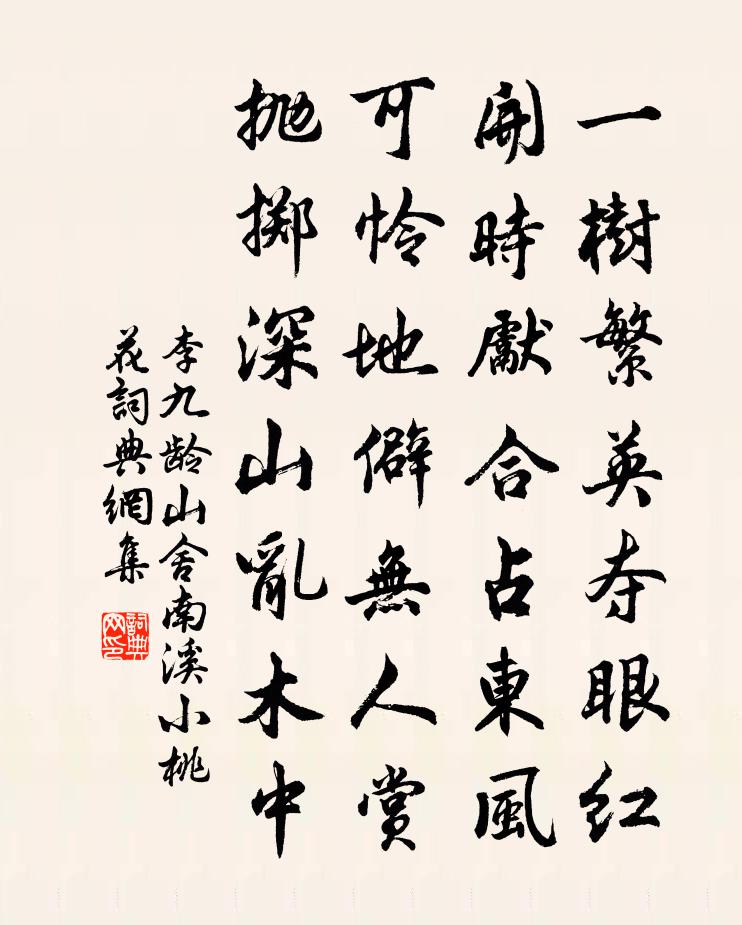 一樹繁英夺眼红
開時獻合占東風
可怜地僻無人賞
抛掷深山亂木中
李九龄山舍南溪小桃
花詞典網集
詞典
网印